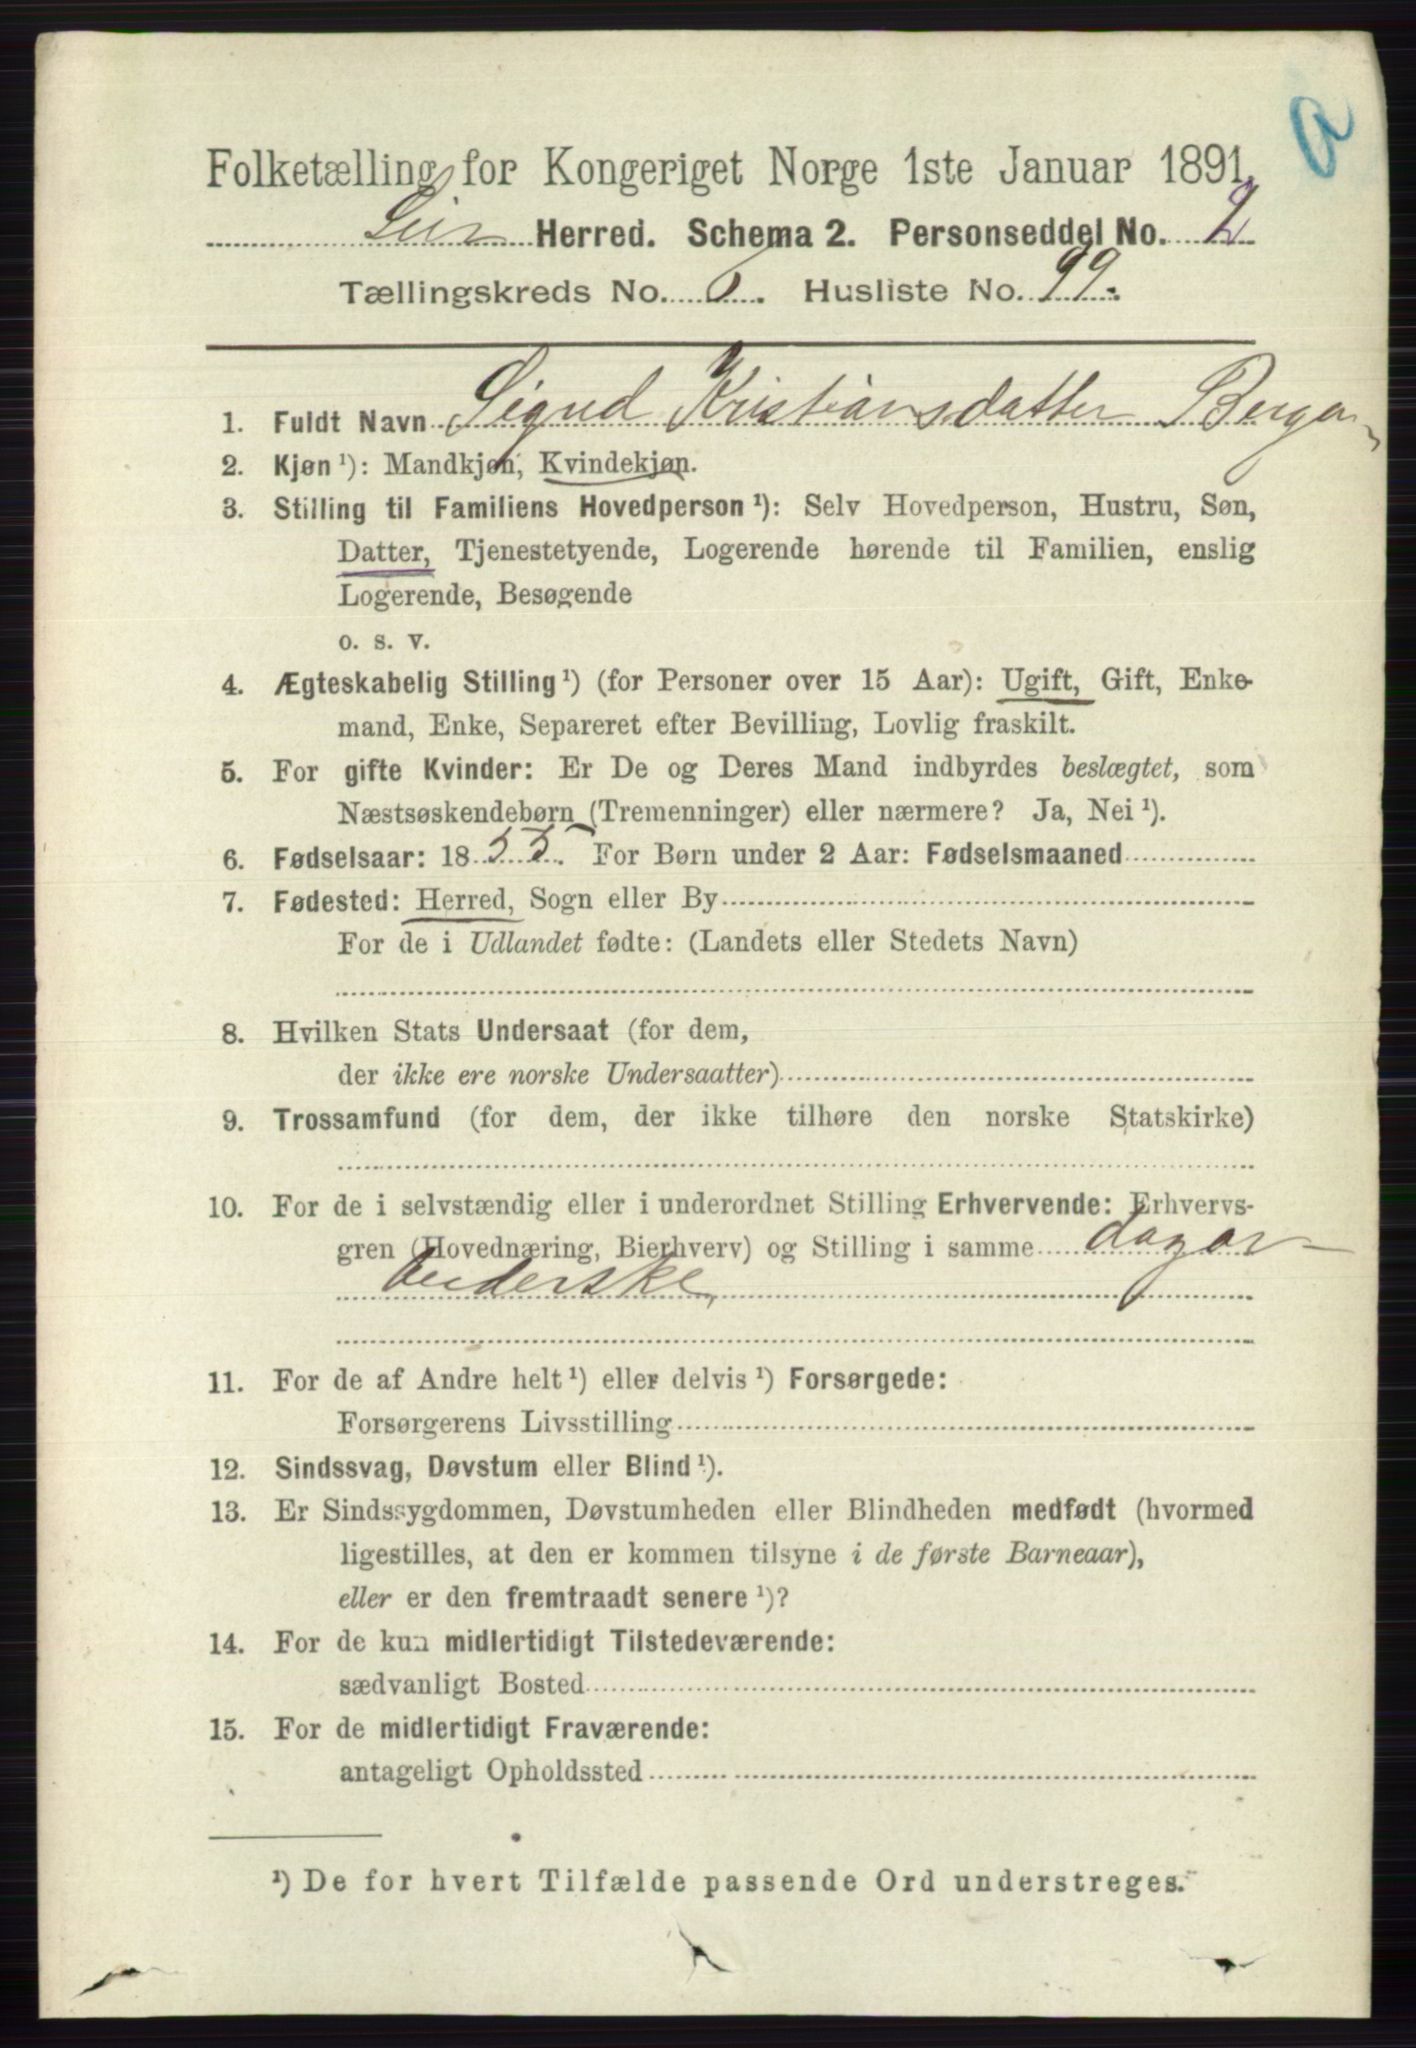 a
Folketælling for Kongeriget Norge 1ste Januar 1891.
Lier Herred. Schema 2. Personseddel No. 2
Tællingskreds No. Husliste No. 99.
1. Fuldt Navn Sigrid Kristiansdatter
2. Kjøn ¹): Mandkjøn, Kvindekjøn.
3. Stilling til Familiens Hovedperson ¹): Selv Hovedperson, Hustru, Søn,
Datter, Tjenestetyende, Logerende hørende til Familien, enslig
Logerende, Besøgende
o. s. v.
4. Ægteskabelig Stilling ¹) (for Personer over 15 Aar): Ugift, Gift, Enke-
mand, Enke, Separeret efter Bevilling, Lovlig fraskilt.
5. For gifte Kvinder: Er De og Deres Mand indbyrdes beslægtet, som
Næstsøskendebørn (Tremenninger) eller nærmere? Ja, Nei ¹).
6. Fødselsaar: 1855 For Børn under 2 Aar: Fødselsmaaned
7. Fødested: Herred, Sogn eller By
For de i Udlandet fødte: (Landets eller Stedets Navn)
8. Hvilken Stats Undersaat (for dem,
der ikke ere norske Undersaatter)
9. Trossamfund (for dem, der ikke tilhøre den norske Statskirke)
10. For de i selvstændig eller i underordnet Stilling Erhvervende: Erhvervs-
gren (Hovednæring, Bierhverv) og Stilling i samme dagar-
beiderske
11. For de af Andre helt ¹) eller delvis ¹) Forsørgede:
Forsørgerens Livsstilling
12. Sindssvag, Døvstum eller Blind ¹).
13. Er Sindssygdommen, Døvstumheden eller Blindheden medfødt (hvormed
ligestilles, at den er kommen tilsyne i de første Barneaar),
eller er den fremtraadt senere ¹)?
14. For de kun midlertidigt Tilstedeværende:
sædvanligt Bosted
15. For de midlertidigt Fraværende:
antageligt Opholdssted
¹) De for hvert Tilfælde passende Ord understreges.